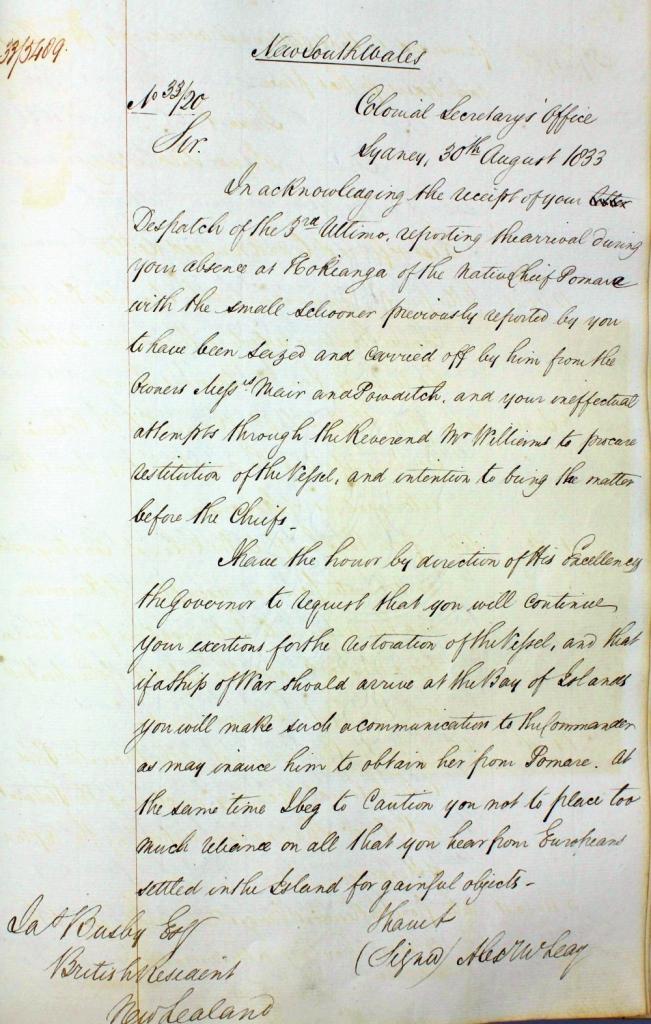 33/5489.
New South Wales
No 33/20
Colonial Secretary's Office
Sir.
Sydney, 30th August 1833
In acknowledging the receipt of your
Despatch of the 3rd Ultimo, reporting the arrival during
your absence at Hokianga of the Native Chief Pomare
with the small schooner previously reported by you
to have been seized and carried off by him from the
Owners Messrs Mair and Powditch, and your ineffectual
attempts through the Reverend Mr Williams to procure
restitution of the Vessel, and intention to bring the matter
before the Chiefs_
I have the honor by direction of His Excellency
the Governor to request that you will continue
your exertions for the restoration of the Vessel, and that
if a Ship of War should arrive at the Bay of Islands
you will make such a communication to the Commander
as may induce him to obtain her from Pomare. At
the same time I beg to Caution you not to place too
much reliance on all that you hear from Europeans
settled in the Island for gainful objects_
I have &c
(Signed) Alexr McLeay
Jas Busby Esqr
British Resident
New Zealand